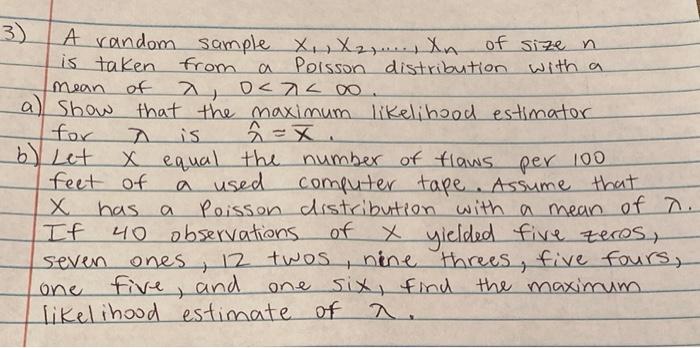 3) A random sample X₁, X₂, ...., Xn of size n
is taken from a Poisson distribution with a
mean of λ, 0<λ<∞.
a) Show that the maximum likelihood estimator
for λ is λ̂ = x̄.
b) Let X equal the number of flaws per 100
feet of a used computer tape. Assume that
X has a Poisson distribution with a mean of λ.
If 40 observations of X yielded five zeros,
seven ones, 12 twos, nine threes, five fours,
one five, and one six, find the maximum
likelihood estimate of λ.